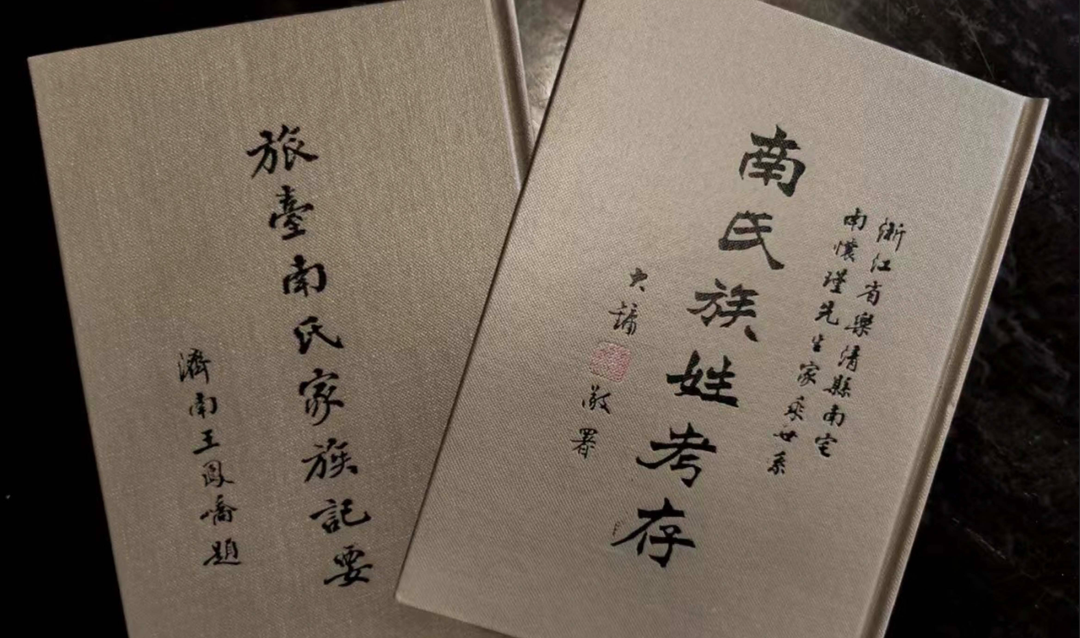 浙江省樂清縣南宅
南懷瑾先生家乘世系
南氏族姓考存
大謆 敬署
旅臺南氏家族記要
濟南王鳳嶠題